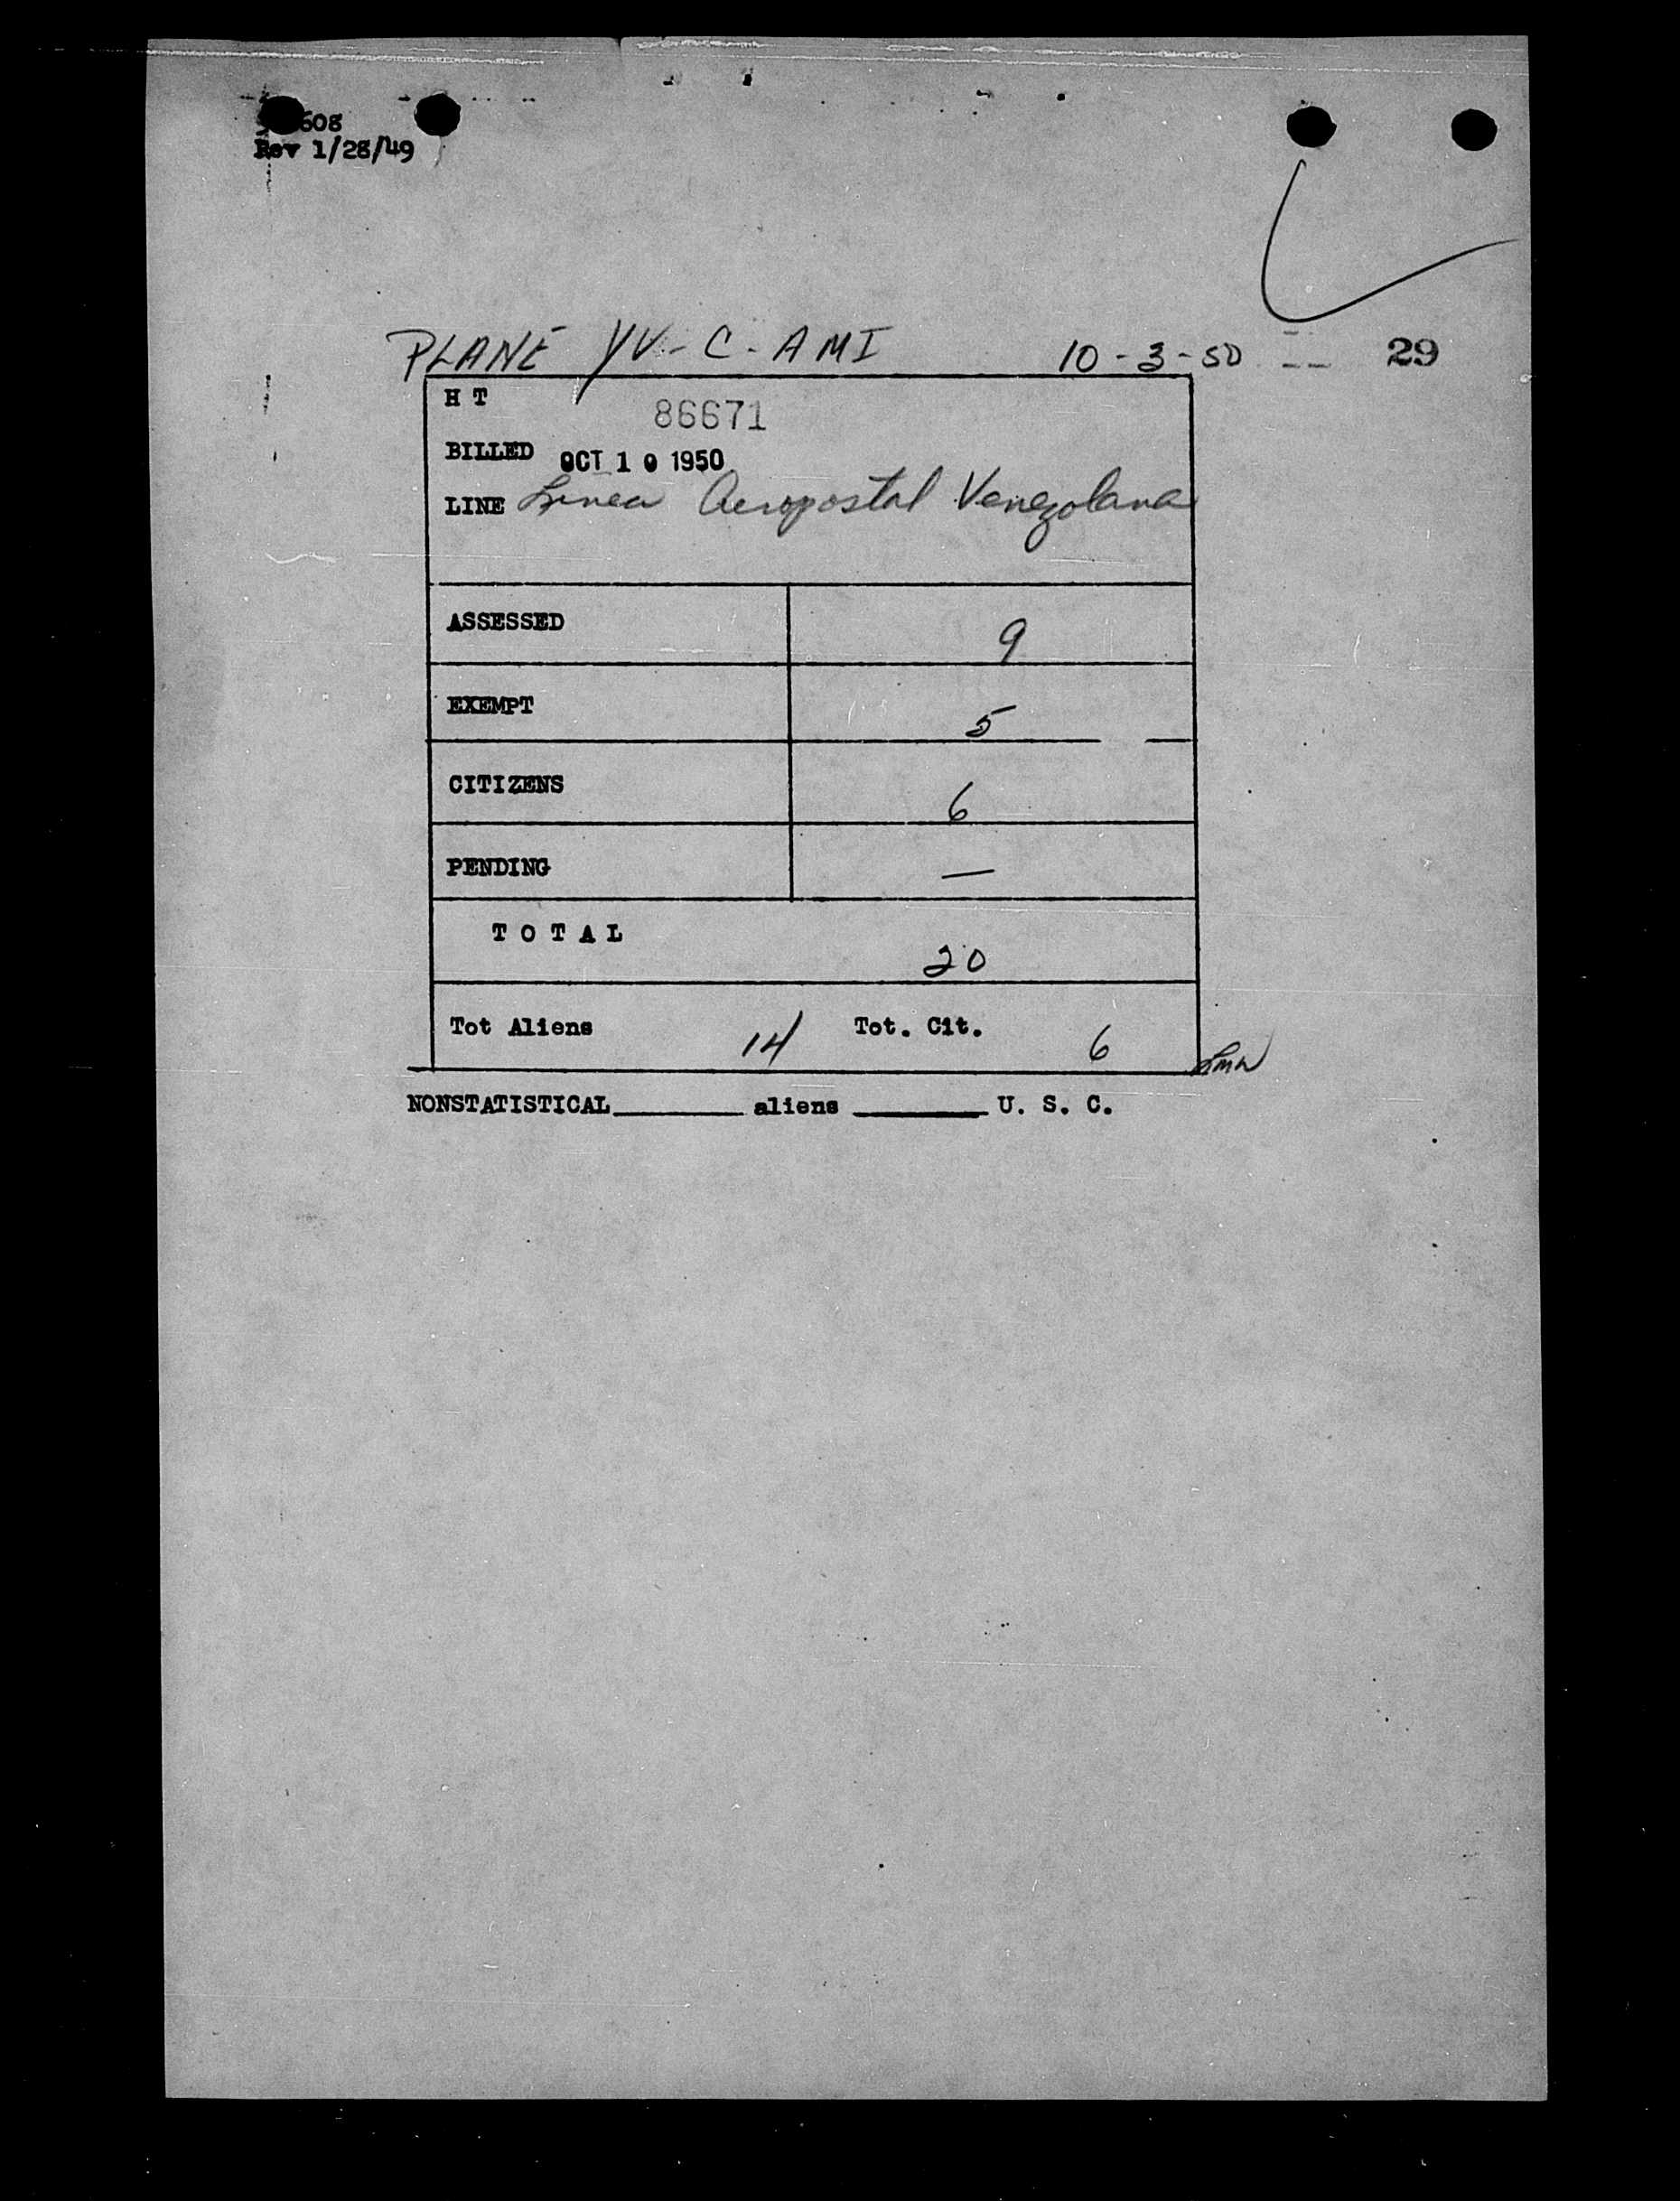 608
Rev 1/28/49
PLANE YV-C-AMI 10-3-50 29
H T 86671
BILLED OCT 10 1950
LINE Linea Aeropostal Venezolana
ASSESSED 9
EXEMPT 5
CITIZENS 6
PENDING —
T O T A L 20
Tot Aliens 14 Tot. Cit. 6
NONSTATISTICAL________ aliens ________ U. S. C.